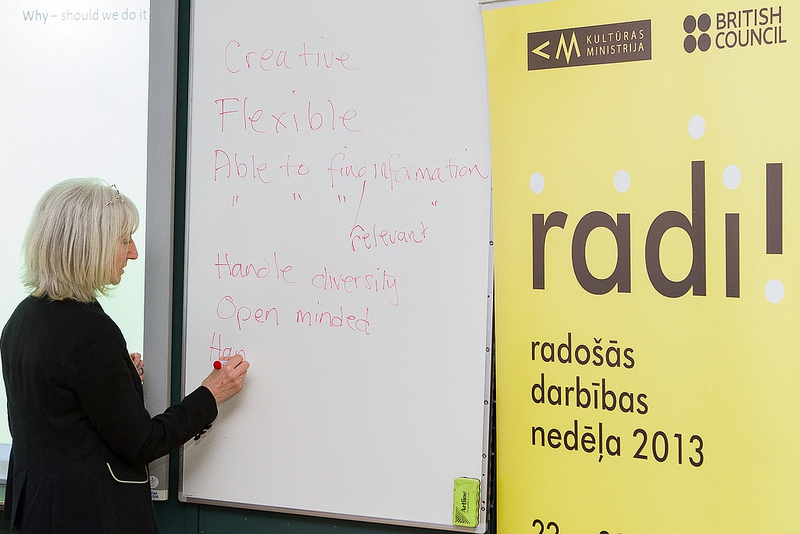 Why – should we do it
Creative
Flexible
Able to find information
" " " "
relevant
Handle diversity
Open minded
Han
KULTŪRAS
MINISTRIJA
BRITISH
COUNCIL
radi!
radošās
darbības
nedēļa 2013
Artline